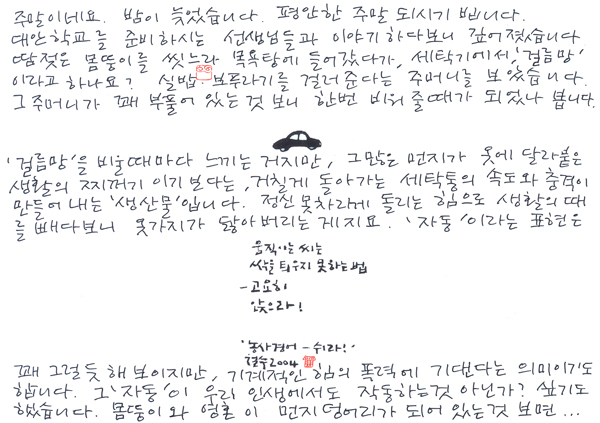 주말이네요. 밤이 늦었습니다. 평안한 주말 되시기 빕니다.
대안학교를 준비하시는 선생님들과 이야기하다보니 깊어졌습니다
땀젖은 몸뚱이를 씻느라 목욕탕에 들어갔다가, 세탁기에서, '걸름망'
이라고 하나요? 실밥·보푸라기를 걸러준다는 주머니를 보았습니다.
그 주머니가 꽤 부풀어 있는 것 보니 한번 비워 줄 때가 되었나 봅니다.
'걸름망'을 비울때마다 느끼는 거지만, 그많은 먼지가 옷에 달라붙은
생활의 찌꺼기 이기 보다는, 거칠게 돌아가는 세탁통의 속도와 충격이
만들어 내는 '생산물'입니다. 정신 못차리게 돌리는 힘으로 생활의 때
를 빼다보니 옷가지가 닳아버리는 게지요. '자동'이라는 표현은
움직이는 씨는
싹을 틔우지 못하는 법
- 고요히
앉으라!
'농사경어 - 쉬라!'
철수2004
꽤 그럴듯 해 보이지만, 기계적인 힘의 폭력에 기댄다는 의미이기도
합니다. 그 '자동'이 우리 인생에서도 작동하는것 아닌가? 싶기도
했습니다. 몸뚱이와 영혼이 먼지덩어리가 되어 있는것 보면...